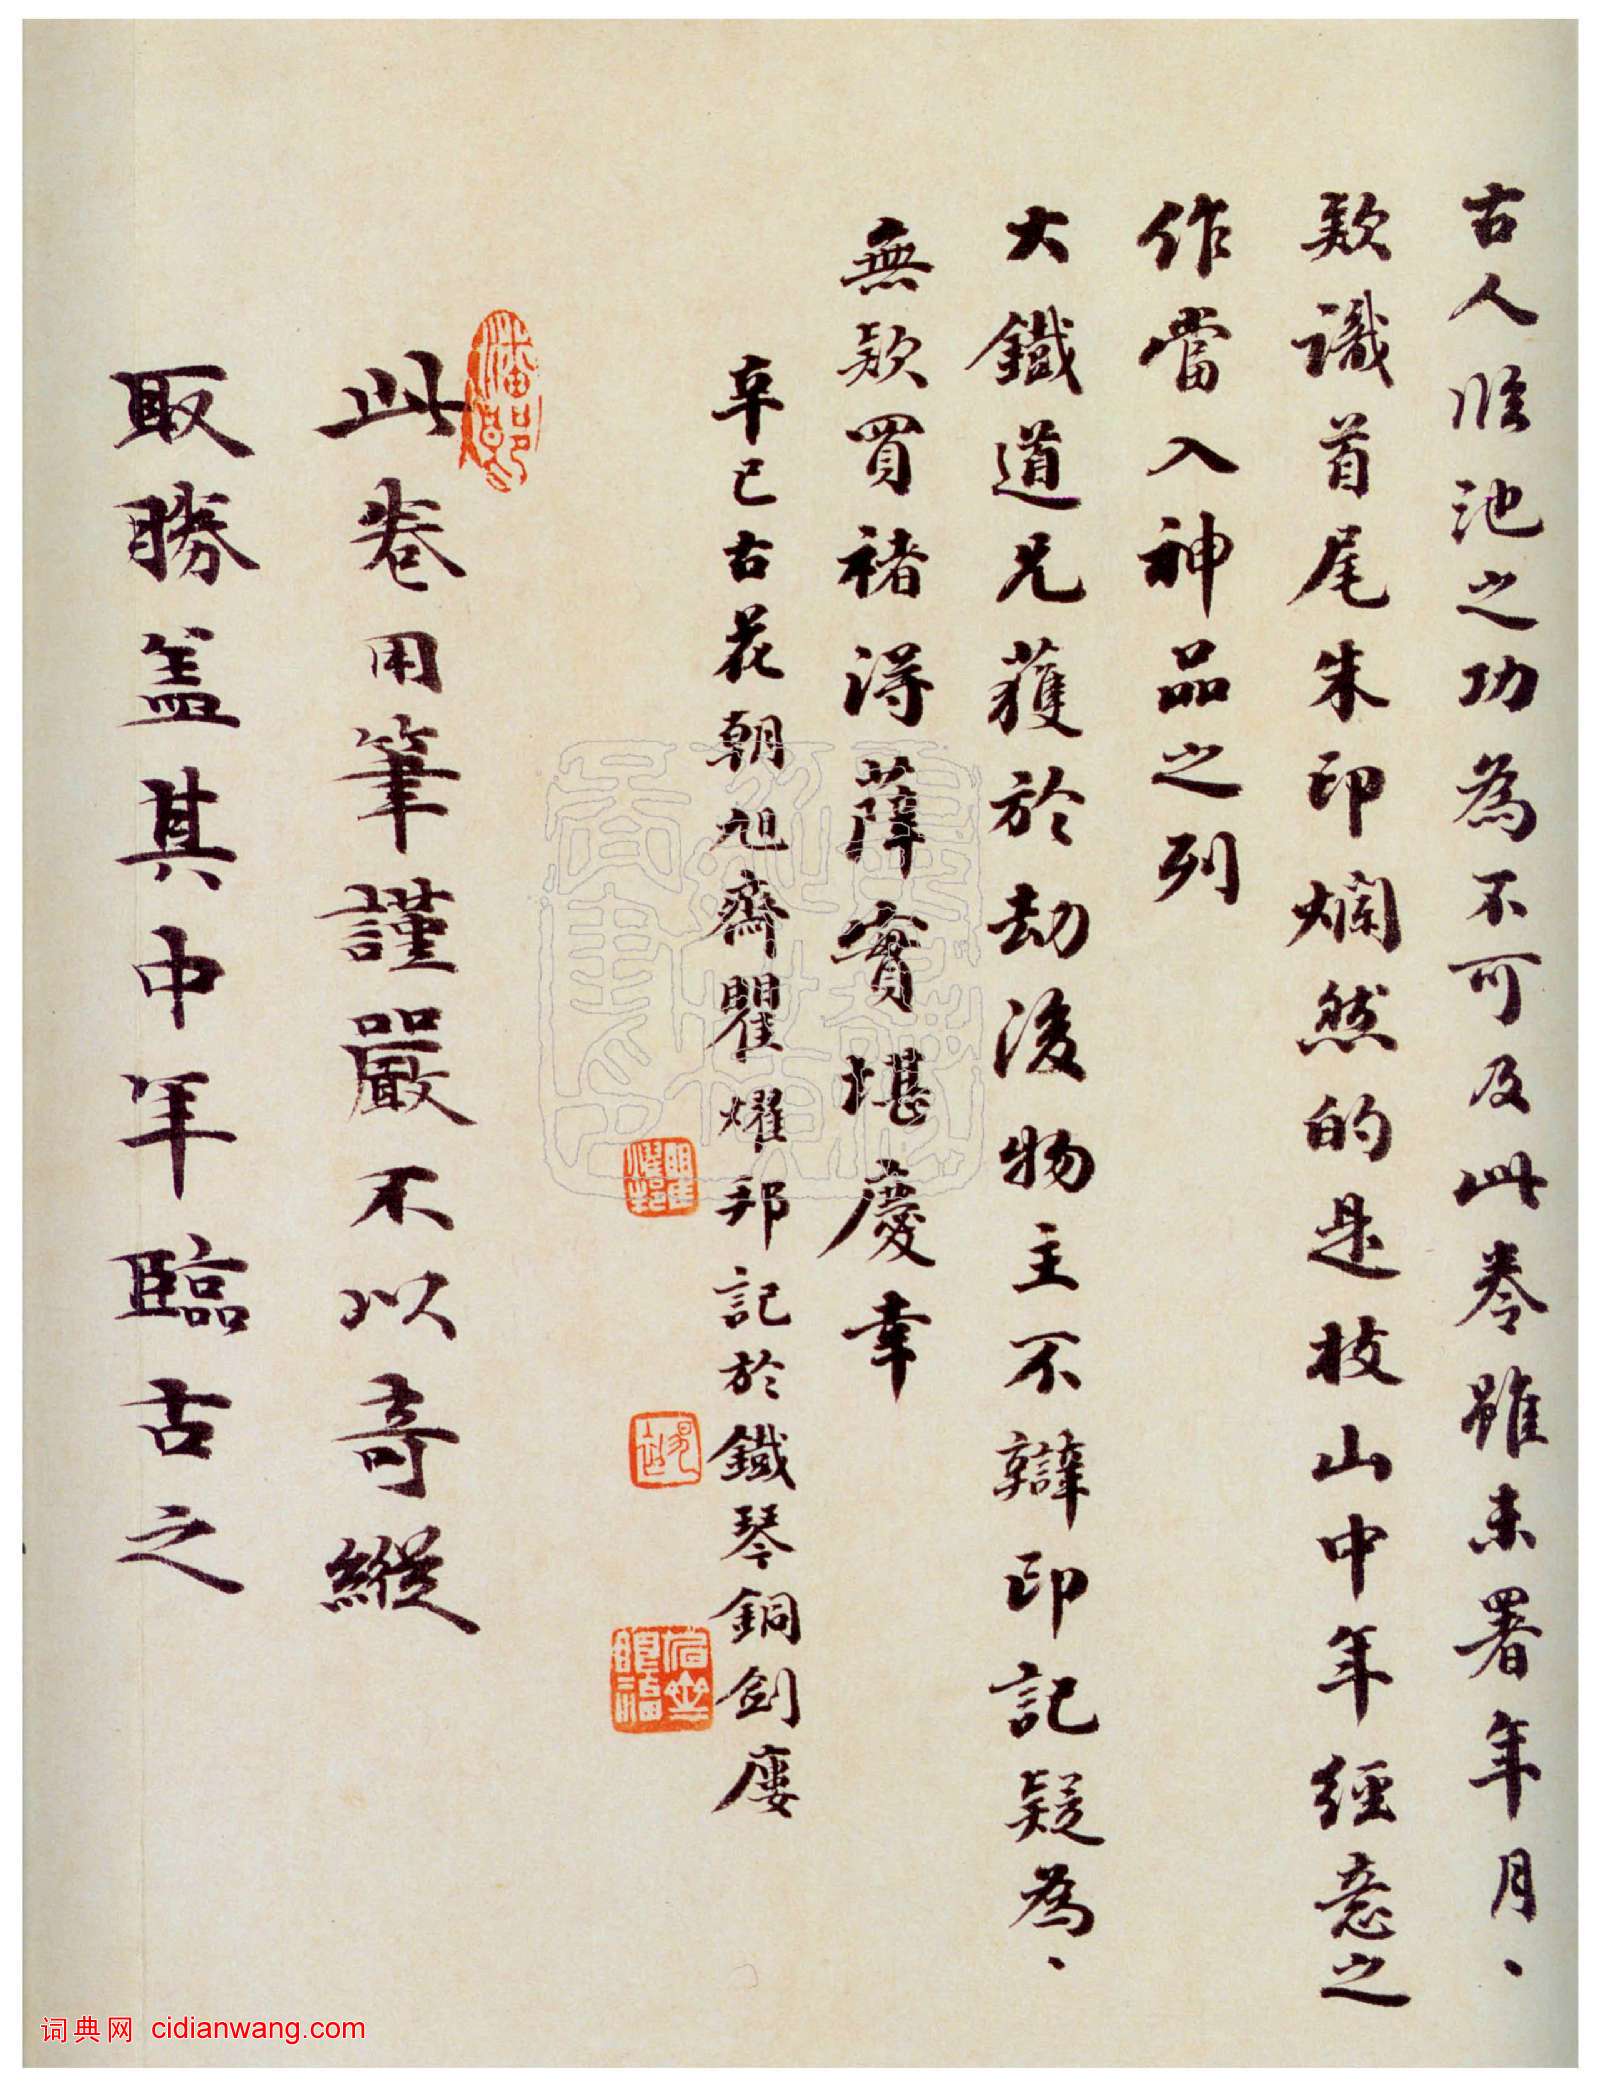 古人臨池之功為不可及此卷雖未署年月、
欵識首尾朱印爛然的是枝山中年經意之
作當入神品之列
大鐵道兄獲於劫後物主不辯印記疑為、
無欵買褚得薛實堪慶幸
辛巳古花朝旭齋瞿燿邦記於鐵琴銅劍廔
此卷用筆謹嚴不以奇縱
取勝盖其中年臨古之
词典网 cidianwang.com